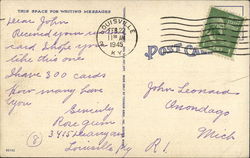 THIS SPACE FOR WRITING MESSAGES
Dear John
Received your
card hope you
like this one
I have 300 cards
how many have
you
Sincerely
Rose Grim
3415
Louisville Ky
8
LOUISVILLE
FEB 22
11 AM
1945
KY.
POST CARD
John Leonard
Onondago
Mich
R1